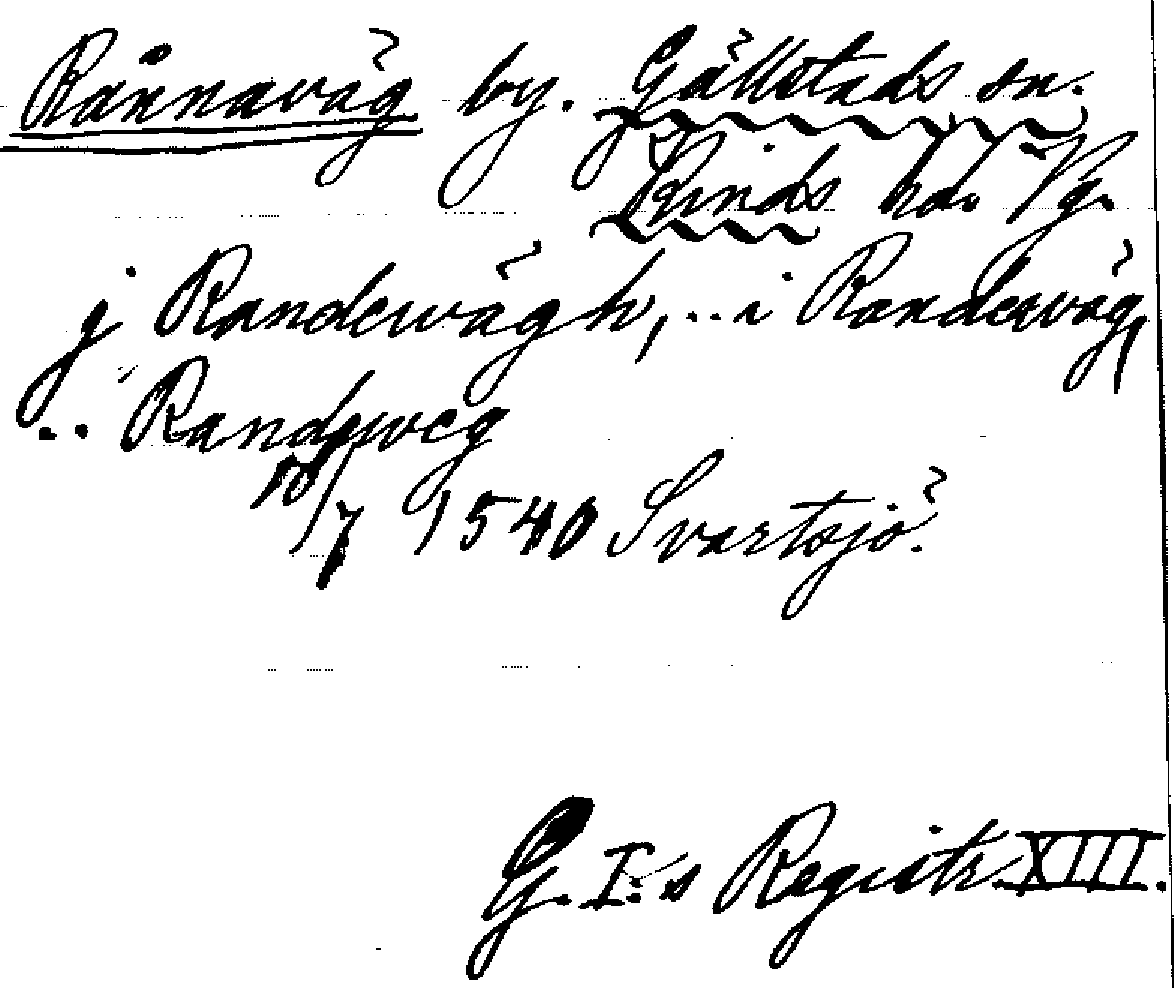 Rånnaväg by. Gällstads sn.
Kinds hd. Vg.
j Randewägh, .. i Randewäg,
.. Randeweg
18/7 1540 Svartsjö.
G. I:s Registr. XIII.